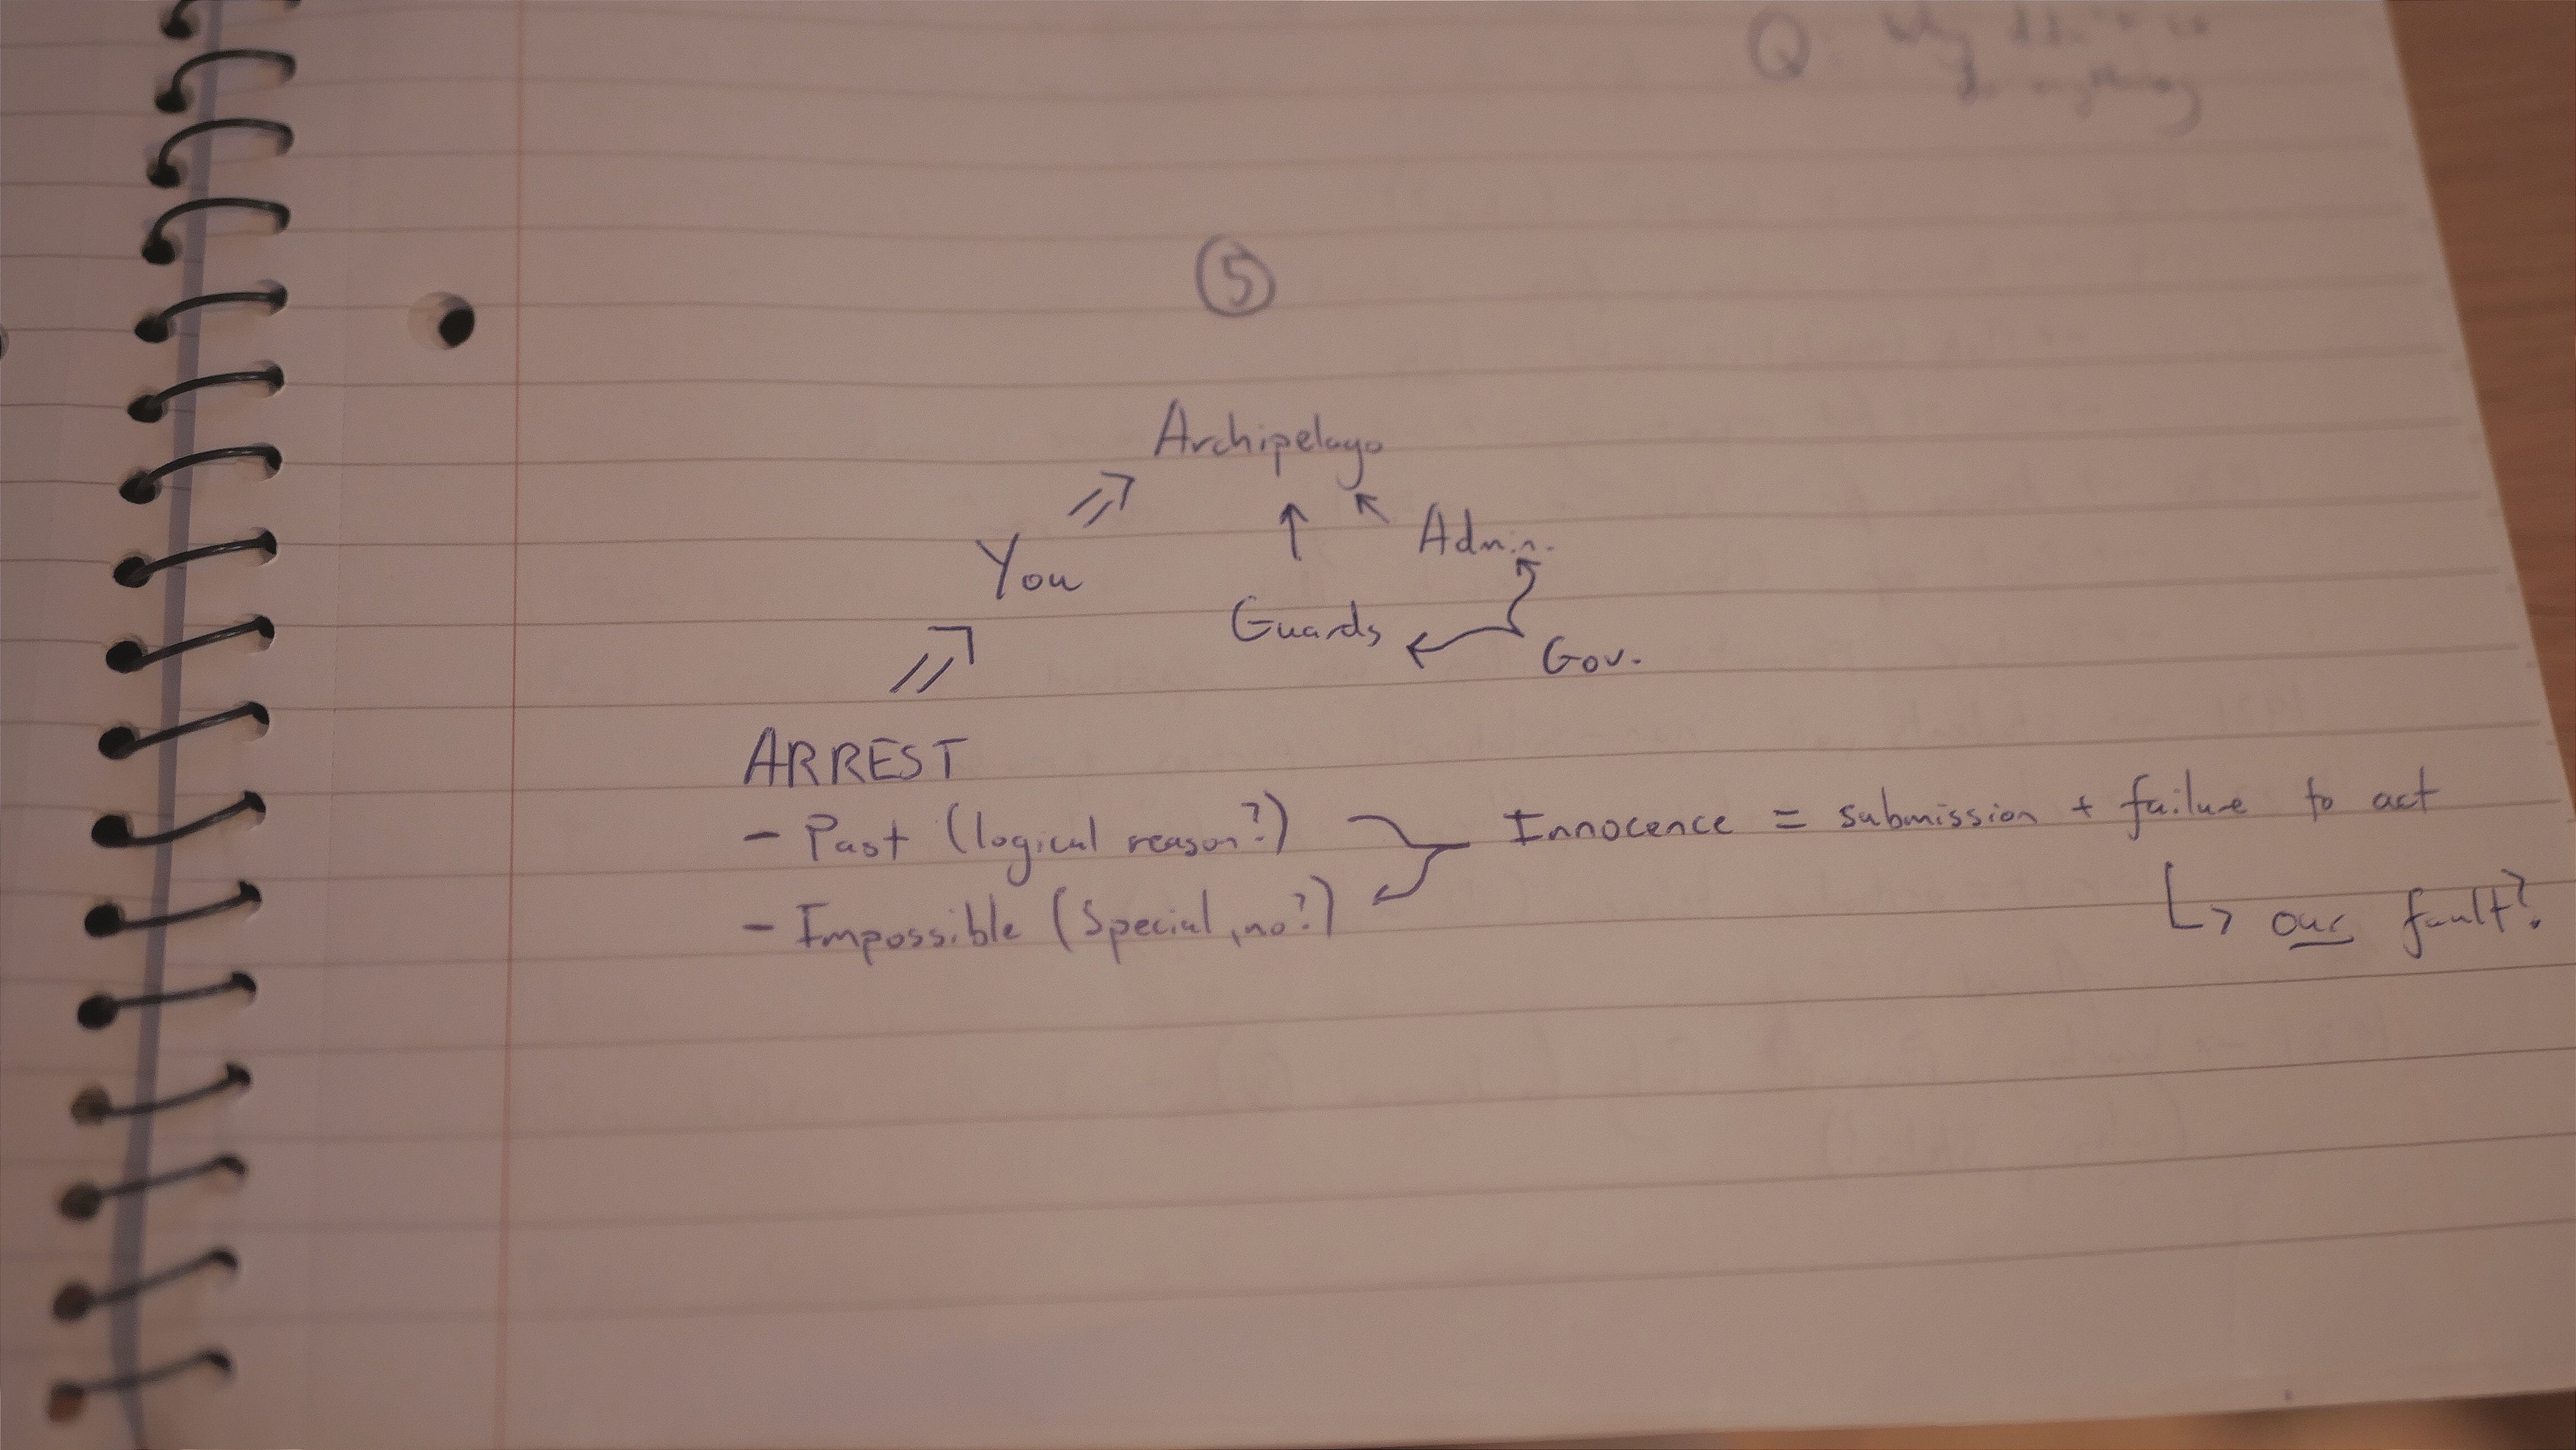 Q: Why didn't we
do anything
5
Archipelago
You
Admin.
Guards
Gov.
ARREST
- Past (logical reason?)
Innocence = submission + failure to act
- Impossible (Special, no?)
our fault?